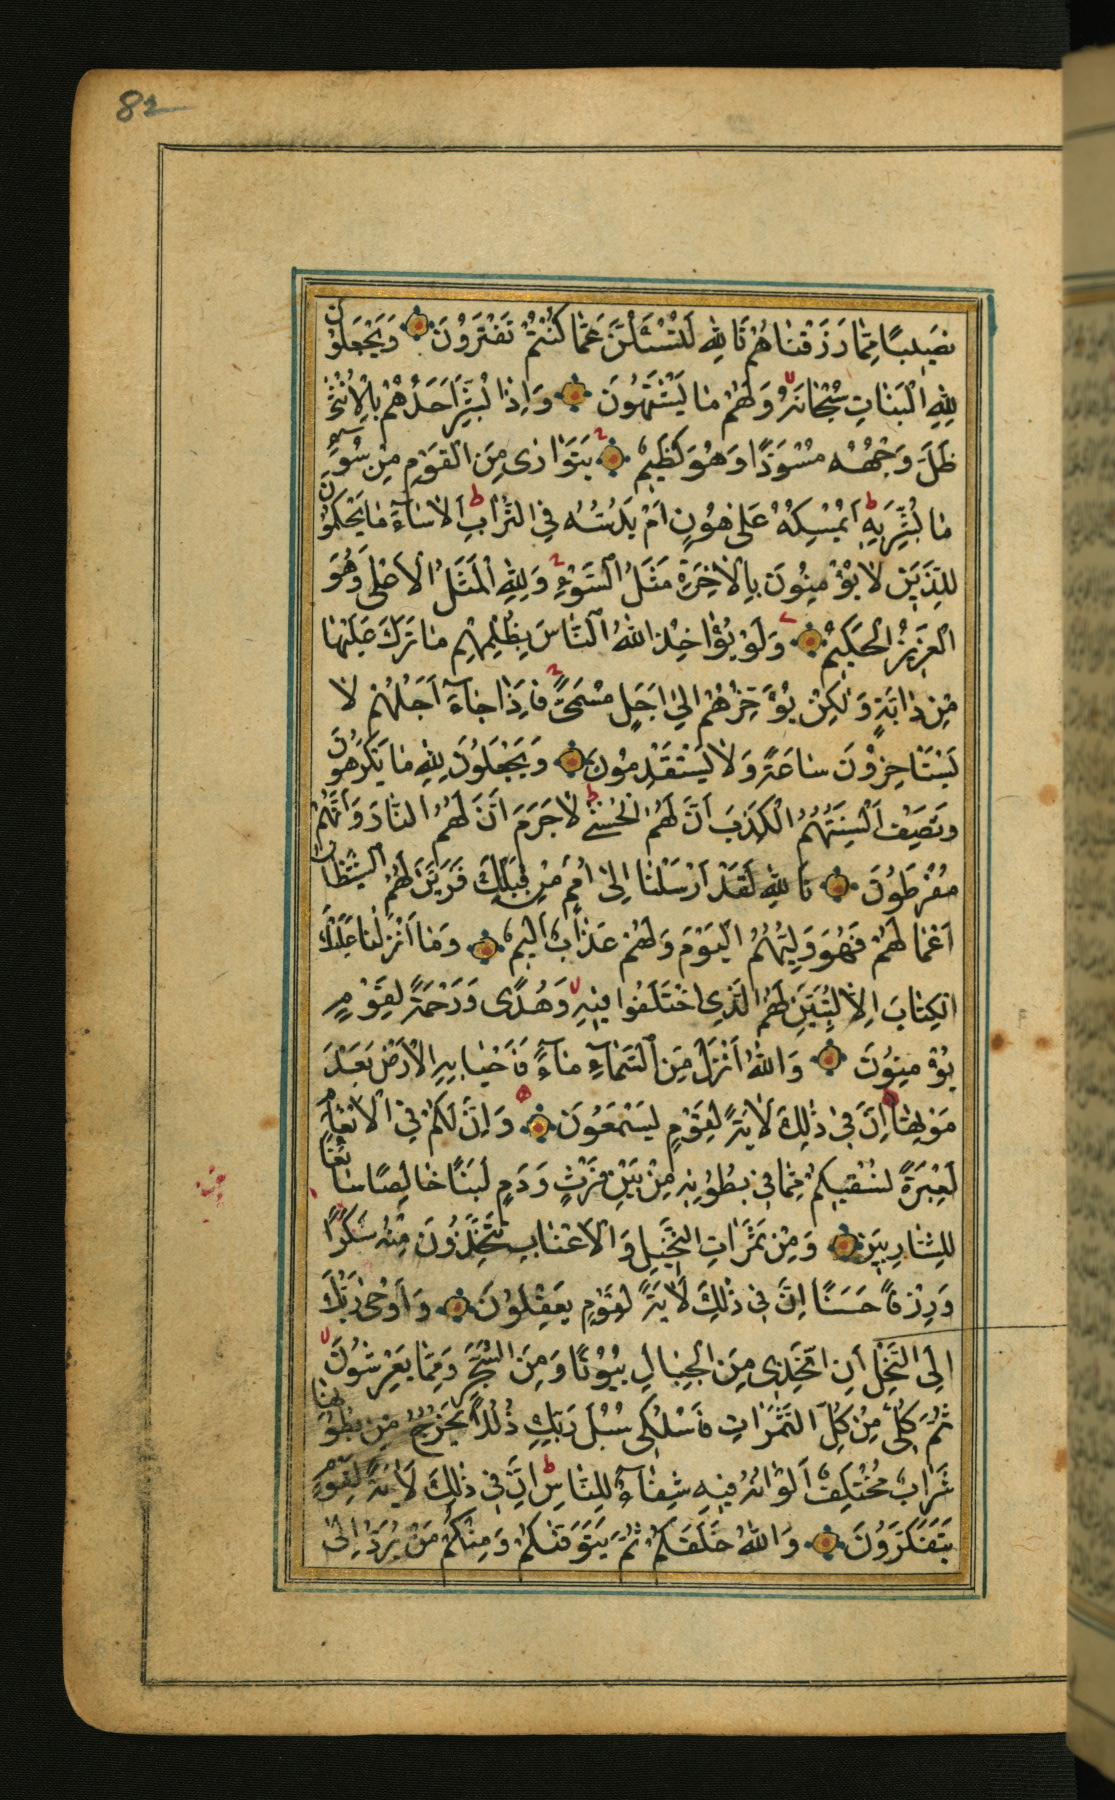 82
نَصيبًا مِمّا رَزَقْناهُمْ تَاللهِ لَتُسْئَلُنَّ عَمّا كُنْتُمْ تَفْتَرُونَ وَيَجْعَلُونَ
لِلهِ الْبَناتِ سُبْحانَهُ وَلَهُمْ ما يَشْتَهُونَ وَاِذا بُشِّرَ اَحَدُهُمْ بِالْاُنْثٰى
ظَلَّ وَجْهُهُ مُسْوَدًّا وَهُوَ كَظيمٌ يَتَوارى مِنَ الْقَوْمِ مِنْ سُوءِ
ما بُشِّرَ بِهِ اَيُمْسِكُهُ عَلى هُونٍ اَمْ يَدُسُّهُ فِي التُّرابِ اَلا ساءَ ما يَحْكُمُونَ
لِلَّذينَ لا يُؤْمِنُونَ بِالْاخِرَةِ مَثَلُ السَّوْءِ وَلِلهِ الْمَثَلُ الْاَعْلٰى وَهُوَ
الْعَزيزُ الْحَكيمُ وَلَوْ يُؤاخِذُ اللهُ النّاسَ بِظُلْمِهِمْ ما تَرَكَ عَلَيْها
مِنْ دابَّةٍ وَلكِنْ يُؤَخِّرُهُمْ اِلى اَجَلٍ مُسَمًّى فَاِذا جاءَ اَجَلُهُمْ لا
يَسْتَاْخِرُونَ ساعَةً وَلا يَسْتَقْدِمُونَ وَيَجْعَلُونَ لِلهِ ما يَكْرَهُونَ
وَتَصِفُ اَلْسِنَتُهُمُ الْكَذِبَ اَنَّ لَهُمُ الْحُسْنٰى لا جَرَمَ اَنَّ لَهُمُ النّارَ وَاَنَّهُمْ
مُفْرَطُونَ تَاللهِ لَقَدْ اَرْسَلْنا اِلى اُمَمٍ مِنْ قَبْلِكَ فَزَيَّنَ لَهُمُ الشَّيْطانُ
اَعْمالَهُمْ فَهُوَ وَلِيُّهُمُ الْيَوْمَ وَلَهُمْ عَذابٌ اَليمٌ وَما اَنْزَلْنا عَلَيْكَ
الْكِتابَ اِلّا لِتُبَيِّنَ لَهُمُ الَّذِى اخْتَلَفُوا فيهِ وَهُدًى وَرَحْمَةً لِقَوْمٍ
يُؤْمِنُونَ وَاللهُ اَنْزَلَ مِنَ السَّماءِ ماءً فَاَحْيا بِهِ الْاَرْضَ بَعْدَ
مَوْتِها اِنَّ فى ذلِكَ لَايَةً لِقَوْمٍ يَسْمَعُونَ وَاِنَّ لَكُمْ فِى الْاَنْعامِ
لَعِبْرَةً نُسْقيكُمْ مِمّا فى بُطُونِهِ مِنْ بَيْنِ فَرْثٍ وَدَمٍ لَبَنًا خالِصًا سائِغًا
لِلشّارِبينَ وَمِنْ ثَمَراتِ النَّخيلِ وَالْاَعْنابِ تَتَّخِذُونَ مِنْهُ سَكَرًا
وَرِزْقًا حَسَنًا اِنَّ فى ذلِكَ لَايَةً لِقَوْمٍ يَعْقِلُونَ وَاَوْحٰى رَبُّكَ
اِلَى النَّحْلِ اَنِ اتَّخِذى مِنَ الْجِبالِ بُيُوتًا وَمِنَ الشَّجَرِ وَمِمّا يَعْرِشُونَ
ثُمَّ كُلى مِنْ كُلِّ الثَّمَراتِ فَاسْلُكى سُبُلَ رَبِّكِ ذُلُلًا يَخْرُجُ مِنْ بُطُونِها
شَرابٌ مُخْتَلِفٌ اَلْوانُهُ فيهِ شِفاءٌ لِلنّاسِ اِنَّ فى ذلِكَ لَايَةً لِقَوْمٍ
يَتَفَكَّرُونَ وَاللهُ خَلَقَكُمْ ثُمَّ يَتَوَفّٰكُمْ وَمِنْكُمْ مَنْ يُرَدُّ اِلى